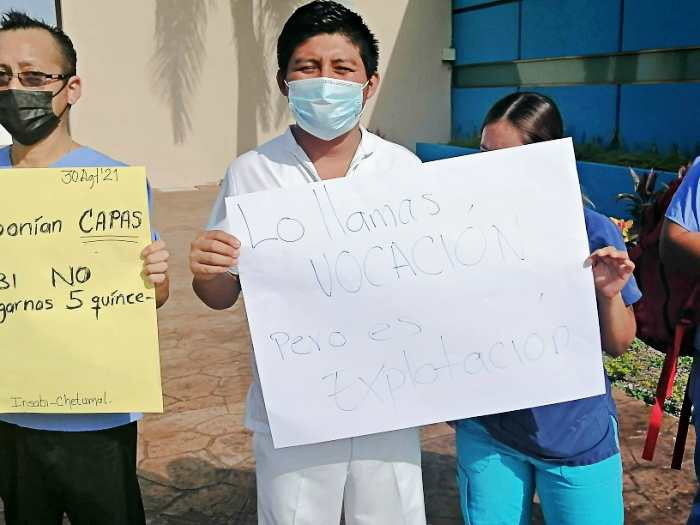 30 Agt'21
ponían CAPAS
BI NO
garnos 5 quince-
Insabi-Chetumal.
Lo llamas
VOCACIÓN
pero es
Explotación.